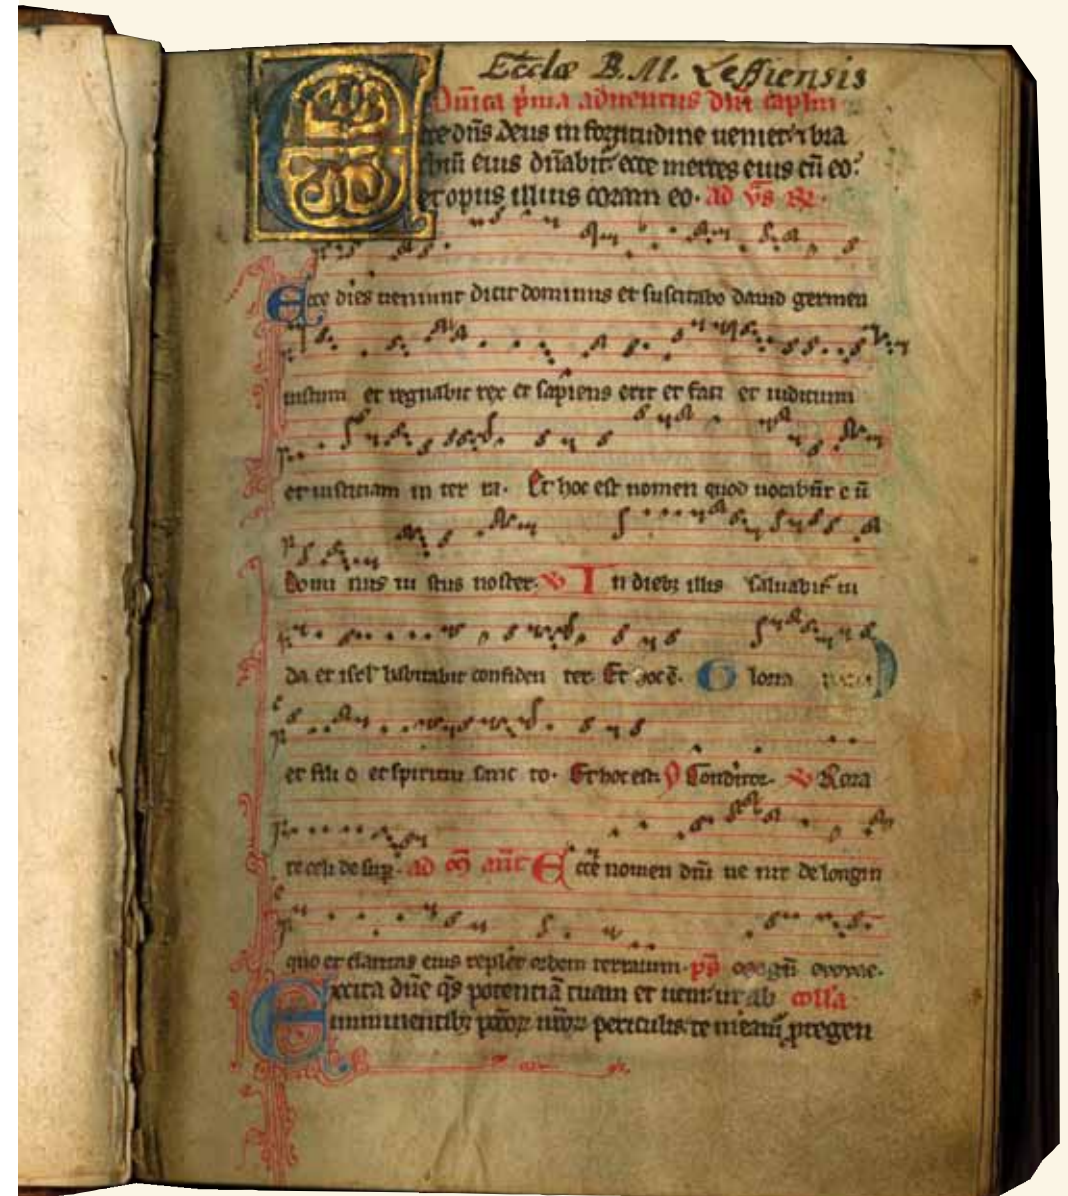 Eccłæ B. M. Leffiensis
Dñica p̃ma aduentus dñi capłm
Ecce dñs deus in fortitudine ueniet ⁊ bra
chiũ eius dñabit᷑ ecce merces eius cũ eo
et opus illius coram eo. ad v̄s
Ecce dies ueniunt dicit dominus et suscitabo dauid germen
iustum et regnabit rex et sapiens erit et faci et iudicium
et iusticiam in ter ra. Et hoc est nomen quod uocabūt e ũ
Domi nus iu stus noster. ℣ In dieb; illis saluabit᷑ iu
da et isrl̄ habitabit confiden ter. Et hoc ē. G loria
et fili o et spiritui sanc to. Et hoc est. Conditor. ℣ Rora
te celi desup. ad m̄ ant̃ Ecce nomen dñi ue nit de longin
quo et claritas eius replet orbem terrarum. p̄s euouae.
Excita dñe q̄s potentiã tuam et ueni ut ab coll̃a
imminentib; pccõꝝ nr̃oꝝ periculis te meam̃ ꝓtegen